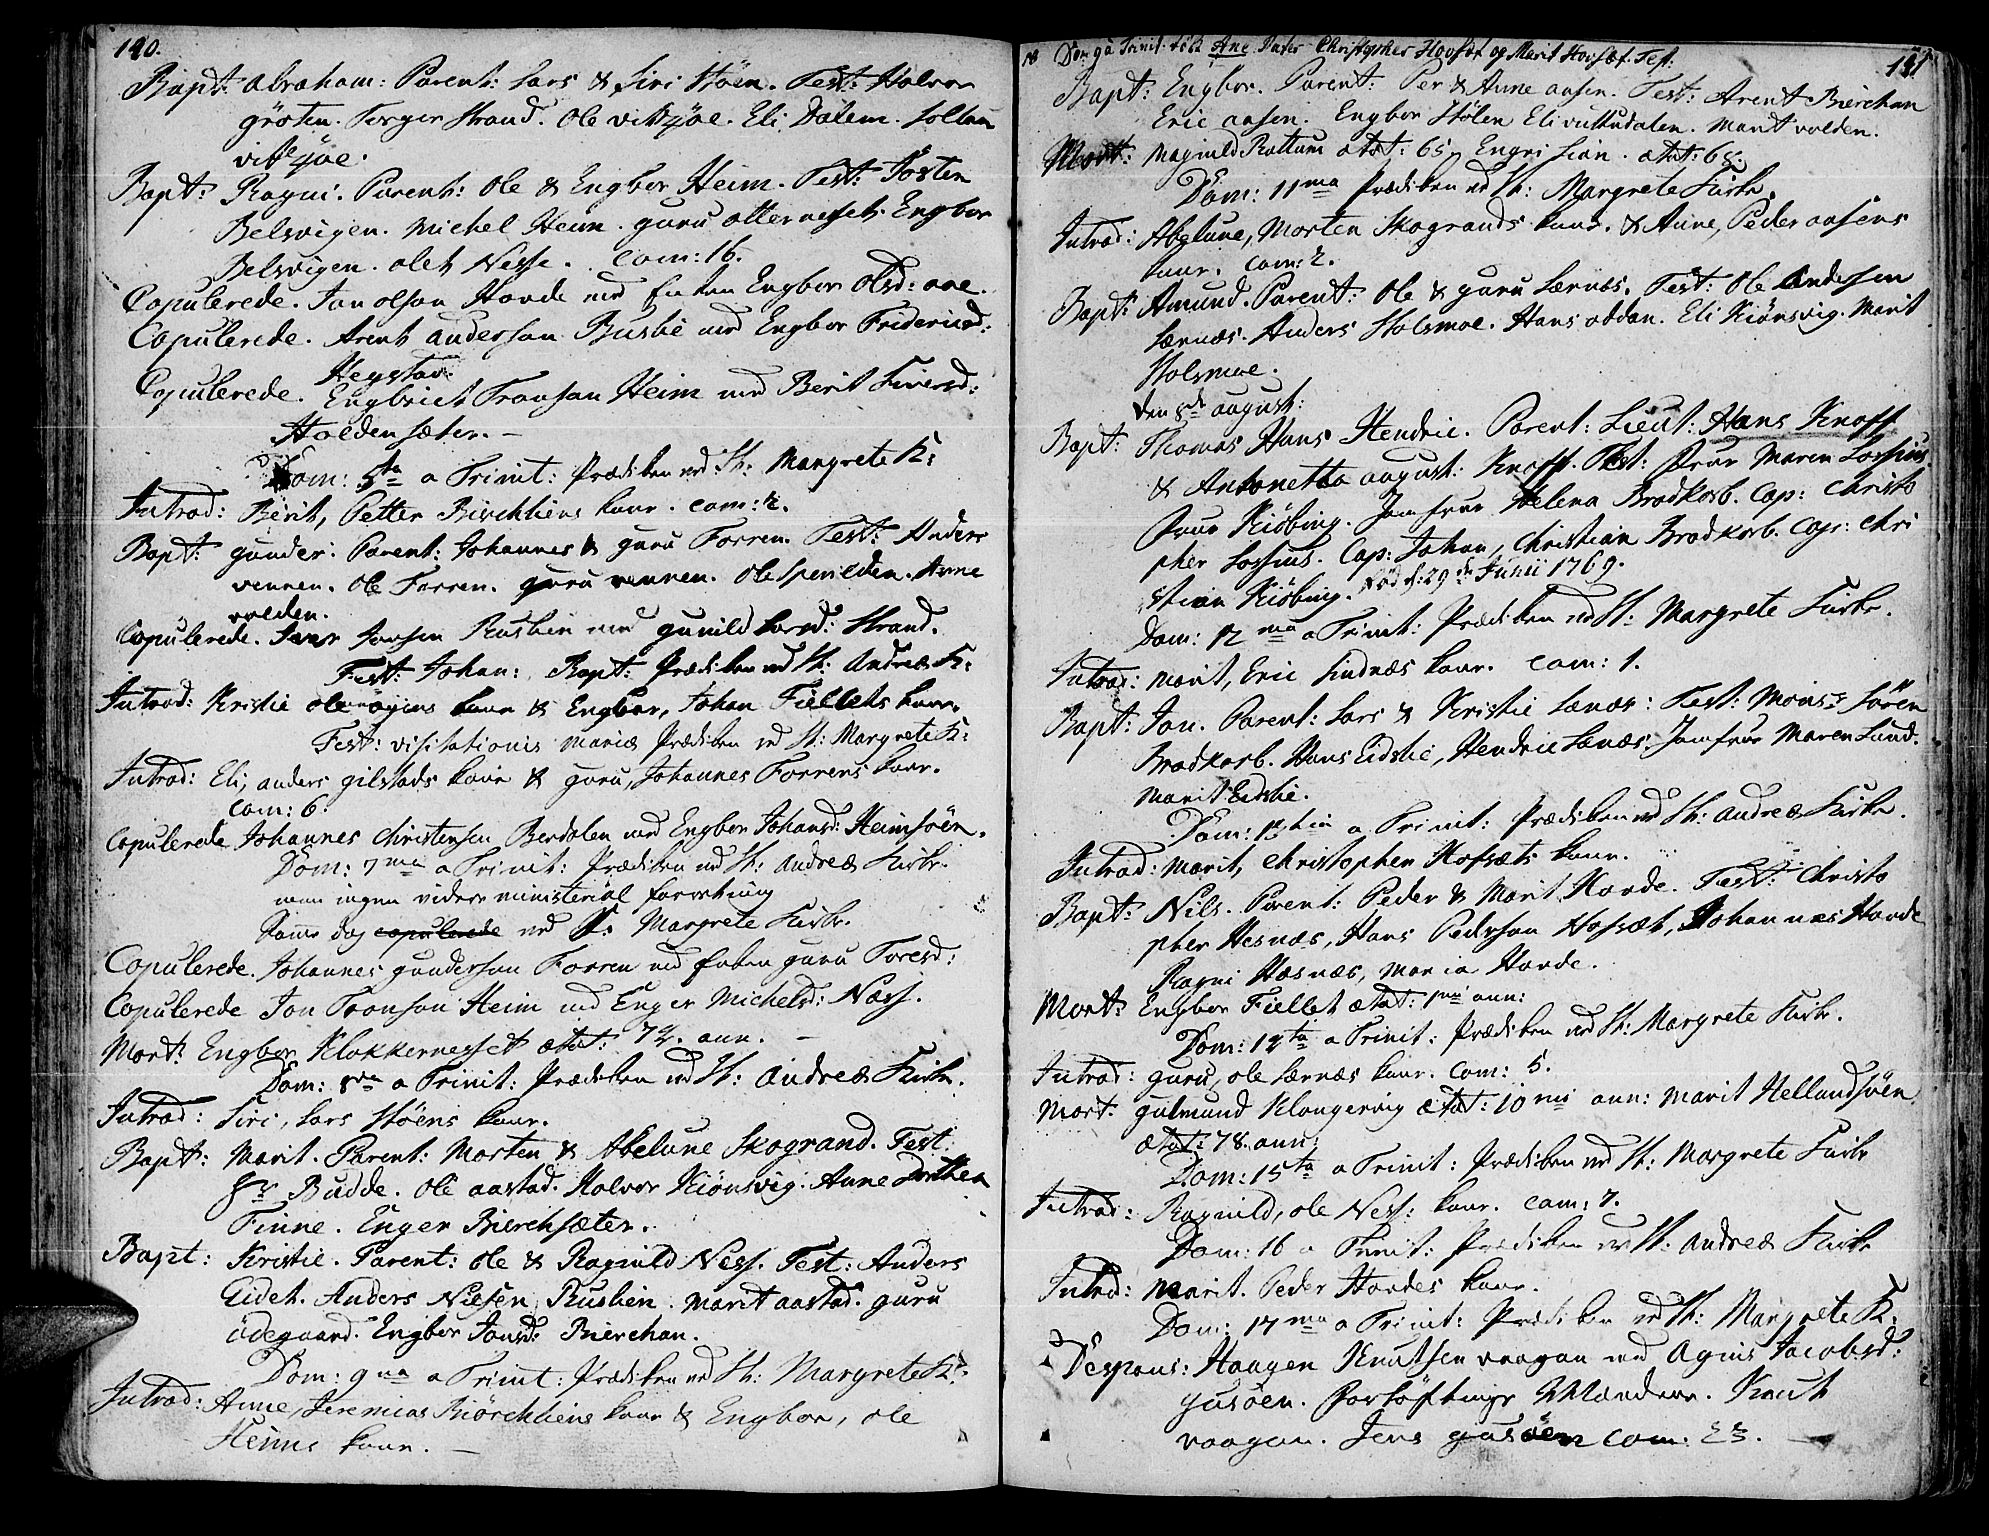 140.
Bapt: Abraham: Parent: Lars & Siri Stöen. Test: Halvor
gröten. Torger Strand. Ole vitsöe. Eli Dalem.
vitsöe.
Bapt: Ragni. Parent: Ole & Engbor Heim. Test: Josten
Belsvigen. Michel Heim. guru otternesset. Engbor
Belsvigen. olet Nesse. Com: 16.
Copulerede. Jon olsøn Hovde med Engbor Olsd: aae.
Copulerede. Arent andersøn Busbie med Engbor Friderichsd:
Hegstav.
Copulerede. Engbrict Tronsøn Heim med Berit Siversd:
Holdensæter. —
Dom: 5ta a Trinit: Prædiken ved St: Margrete K:
Introd: Berit, Petter Birchliens kone. com: 2.
Bapt: gunder: Parent: Johannes & guru Forren. Test: Anders
vennen. Ole Forren. guru vennen. Ole Spenilden. Anne
volden.
Copulerede. Iver Jonsen Ruslien med gunild Larsd: Strand.
Fest: Johan: Bapt: Prædiken ved St: Andreæ K:
Introd: Kristie ole öÿens kone & Engbor, Johan Fiellets kone.
Fest: visitationis mariæ Prædiken ved St: Margrete K:
Introd: Eli, anders gilstads kone & guru, Johannes Forrens kone.
Com: 6.
Copulerede Johannes Christensen Berdalen med Engbor Johansd: Heimsöen.
Dom: 7ma a Trinit: Prædiken ved St: Andreæ Kirke.
men ingen videre ministerial forretning
Samme dag copulerede ved St. Margrete Kirke.
Copulerede. Johannes gundersøn Forren med enken guru Toresd:
Copulerede Jon Tronsøn Heim med Enger Michelsd: Næss.
Mort: Engbor Klokkernesset ætat: 72. ann. —
Dom: 8va a Trinit: Prædiken ved St: Andreæ Kirke.
Introd: Siri, Lars Stöens kone.
Bapt: Marit. Parent: Morten & Abelune Skogrand. Test:
Hr Budde. Ole aastad. Halvor Kiönsvig. Anne Dorthea
Finne. Enger Bierchsæter.
Bapt: Kristie. Parent: Ole & Ragnild Ness. Test: Anders
Eidet. Anders Nielsen Ruslien. Marit aastad. guru
ödegaard. Engbor Jonsd: Bierchan.
Dom: 9na a Trinit: Prædiken ved St: Margrete K:
Introd: Anne, Jeremias Biörchliens kone & Engbor, ole
Heims kone. —
Dom 9 a Trinit. döbt Ane Christopher Hovset og Marit Hovsæt. Test:
141
Bapt: Engbor. Parent: Per & Anne aasen. Test: Arent Bierchan
Eric aasen. Engbor Stölen Eli vuttudalen. Marit volden.
Mort: Magnild Rottum ætat: 65. Engri Lian. ætat: 68.
Dom: 11ma Prædiken ved St: Margrete Kirke.
Introd: Abelune, Morten Skogrands kone. & Anne, Peder aasens
kone. com: 2.
Bapt: Amund. Parent: Ole & guru Lernæs. Test: Ole Andersen
Lernæs. Anders Holsmoe. Hans oddan. Eli Kiönsvig. Marit
Holsmoe.
den 8de august:
Bapt: Thomas Hans Hendric. Parent: Lieut: Hans Knoff
& Antonetta august: Knoff. Test: Frue Maren Lossius
Frue Kiöbing. Jomfrue Helena Brodkorb. Cap: Christo
pher Lossius. Cap: Johan Christian Brodkorb. Cap: Chri
stian Kiöbing. Födt d: 29de Junii 1769.
Dom: 12ma a Trinit: Prædiken ved St: Margrete Kirke.
Introd: Marit, Eric Lindnæs kone. Com: 1.
Bapt: Jon. Parent: Lars & Kristie Lænæs: Test: Monsr Sören
Brodkorb. Hans Eidslie, Hendric Lænæs. Jomfrue Maren Lund.
Marit Eidslie.
Dom: a Trinit: Prædiken ved St: Andreæ Kirke.
Introd: Marit, Christopher Hofsæts kone.
Bapt: Nils. Parent: Peder & Marit Hovde. Test: Christo
pher Hesnæs, Hans Pedersøn Hofsæt, Johannes Hovde
Ragni Hæsnæs, Maria Hovde.
Mort: Engbor Fiellet ætat: 1mi ann:
Dom: 14ta a Trinit: Prædiken ved St: Margrete Kirke.
Introd: guru, ole Lernæs kone. Com: 5.
Mort: gulmund Klongervig ætat: 10mi ann: Marit Hellandsöen
ætat: 78. ann:
Dom: 15ta a Trinit: Prædiken ved St: Margrete Kirke
Introd: Ragnild, ole Ness: kone. Com: 7.
Dom: 16 a Trinit: Prædiken ved St: Andreæ Kirke
Introd: Marit. Peder Hovdes kone.
Dom: 17ma a Trinit: Prædiken ved St: Margrete K.
Despons: Haagen Knutsen vaagan med Agnis Jacobsd:
gusöen. forlöftnings Mændene. Knut
vaagan. Jens gusöen com: 23. —